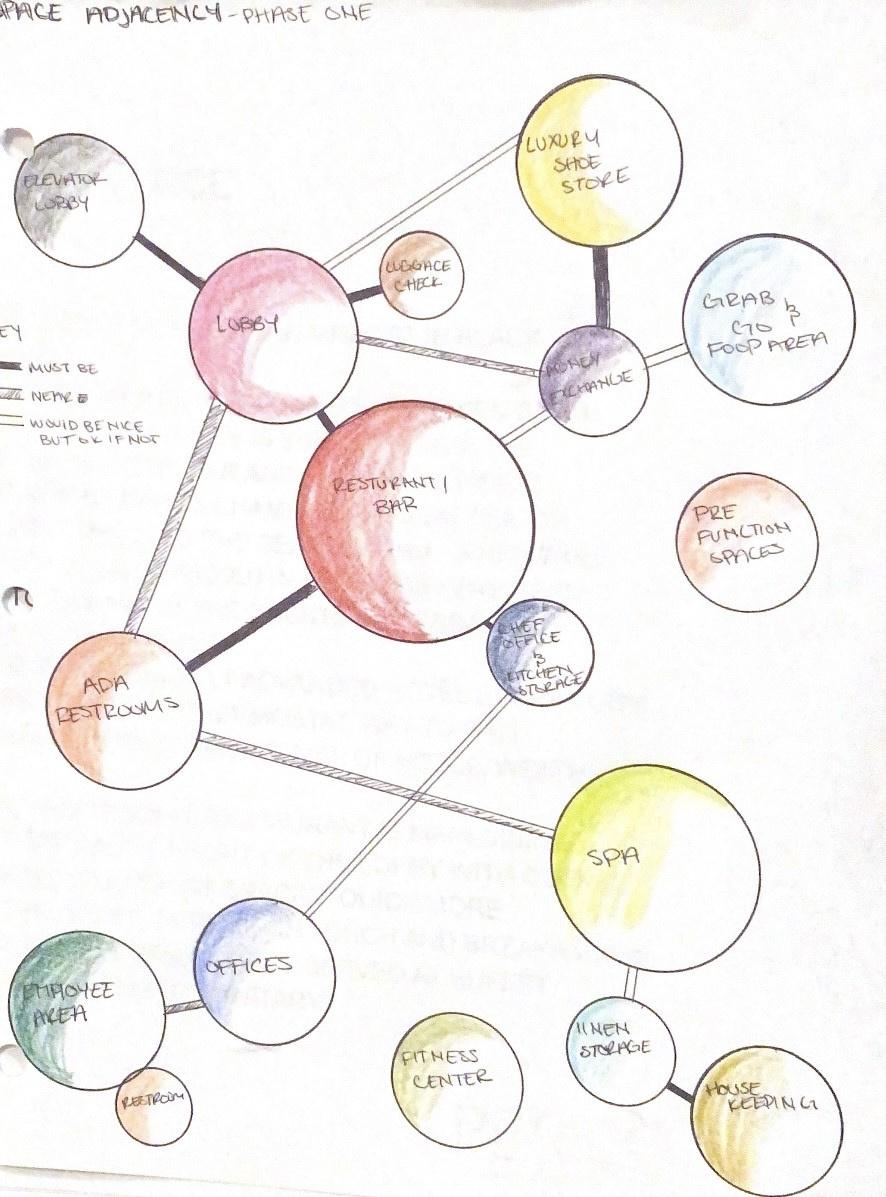 SPACE ADJACENCY - PHASE ONE
LUXURY
SHOE
STORE
ELEVATOR
LOBBY
LUGGAGE
CHECK
LOBBY
GRAB &
GO
FOOD AREA
KEY
MUST BE
NEAR
WOULD BE NICE
BUT OK IF NOT
MONEY
EXCHANGE
RESTURANT/
BAR
PRE
FUNCTION
SPACES
CHEF
OFFICE
&
KITCHEN
STORAGE
ADA
RESTROOMS
SPA
OFFICES
EMPLOYEE
AREA
RESTROOM
FITNESS
CENTER
LINEN
STORAGE
HOUSE
KEEPING